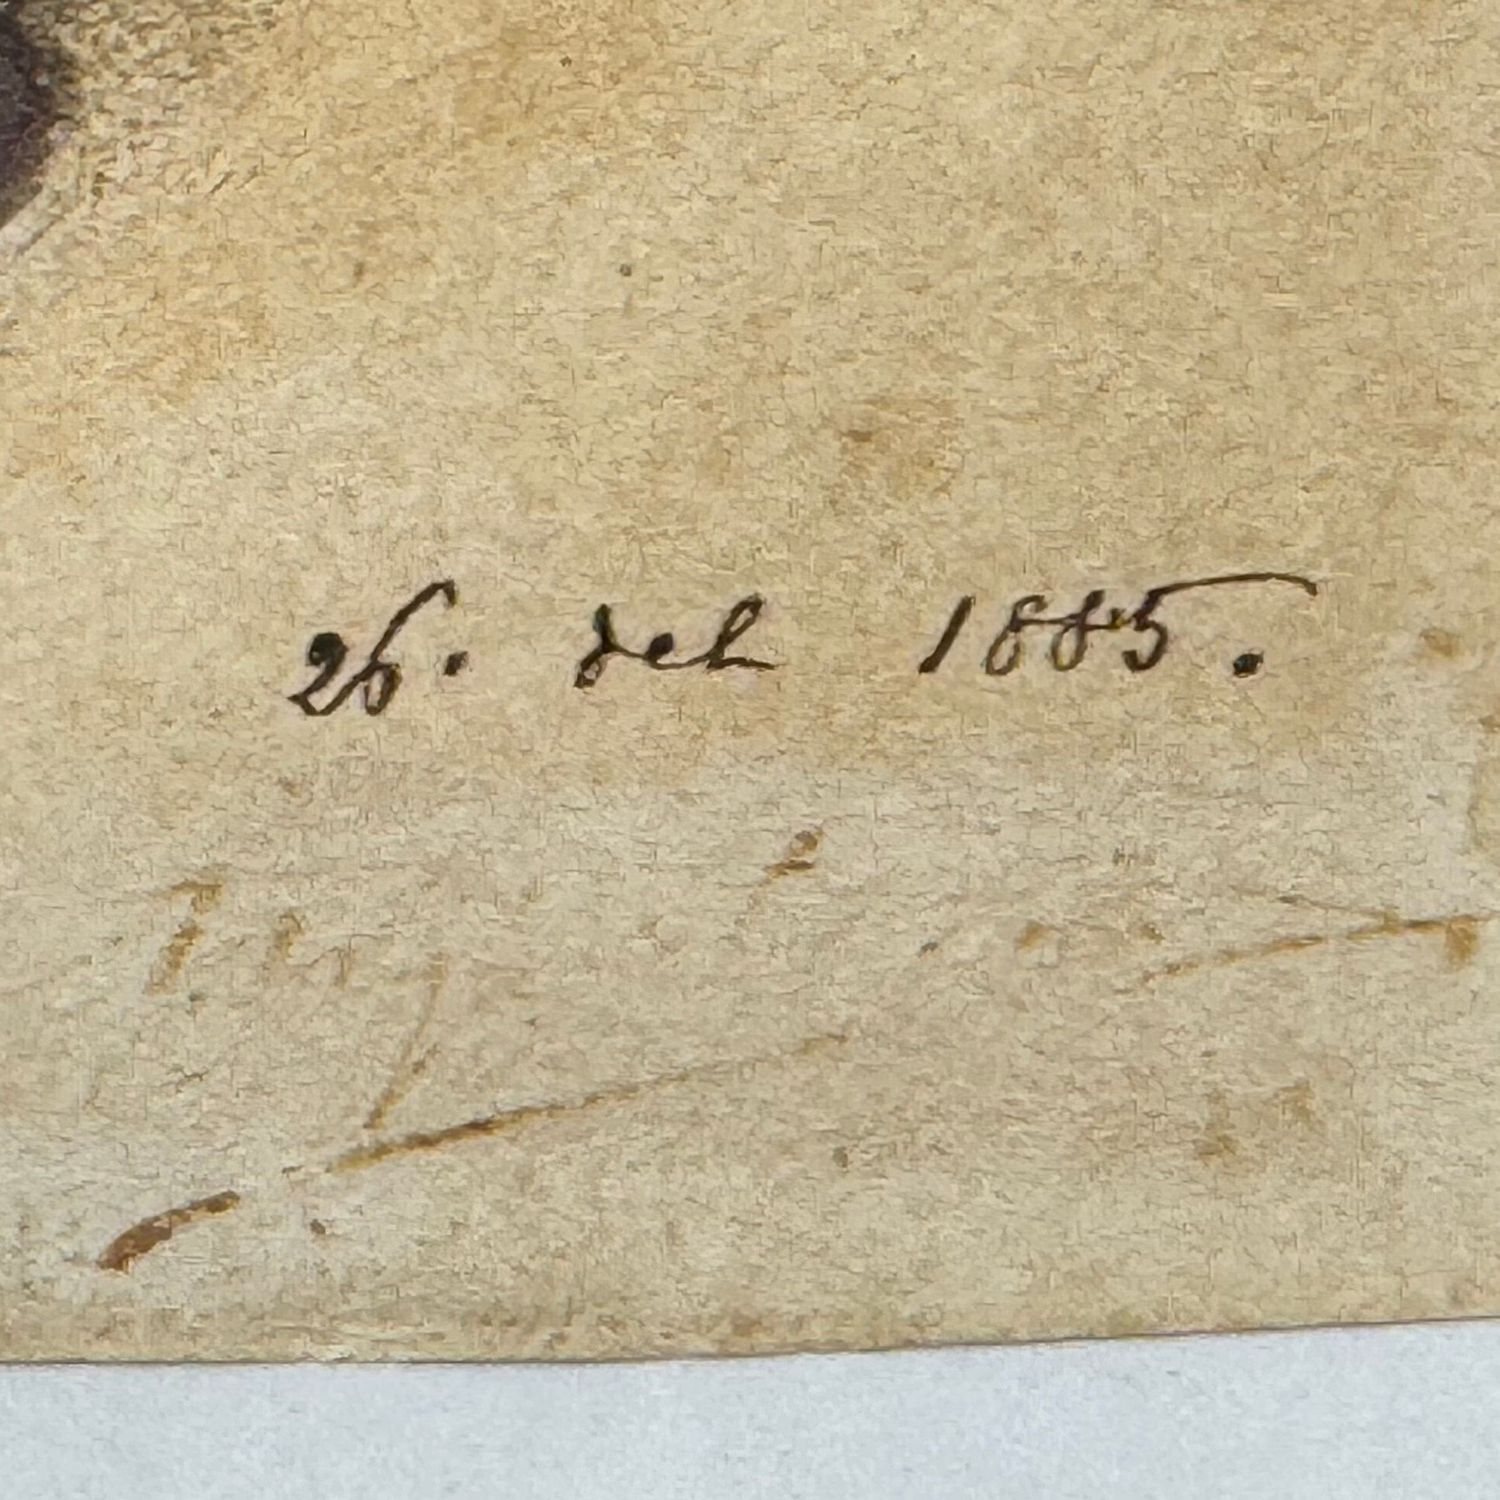 26. del 1885.